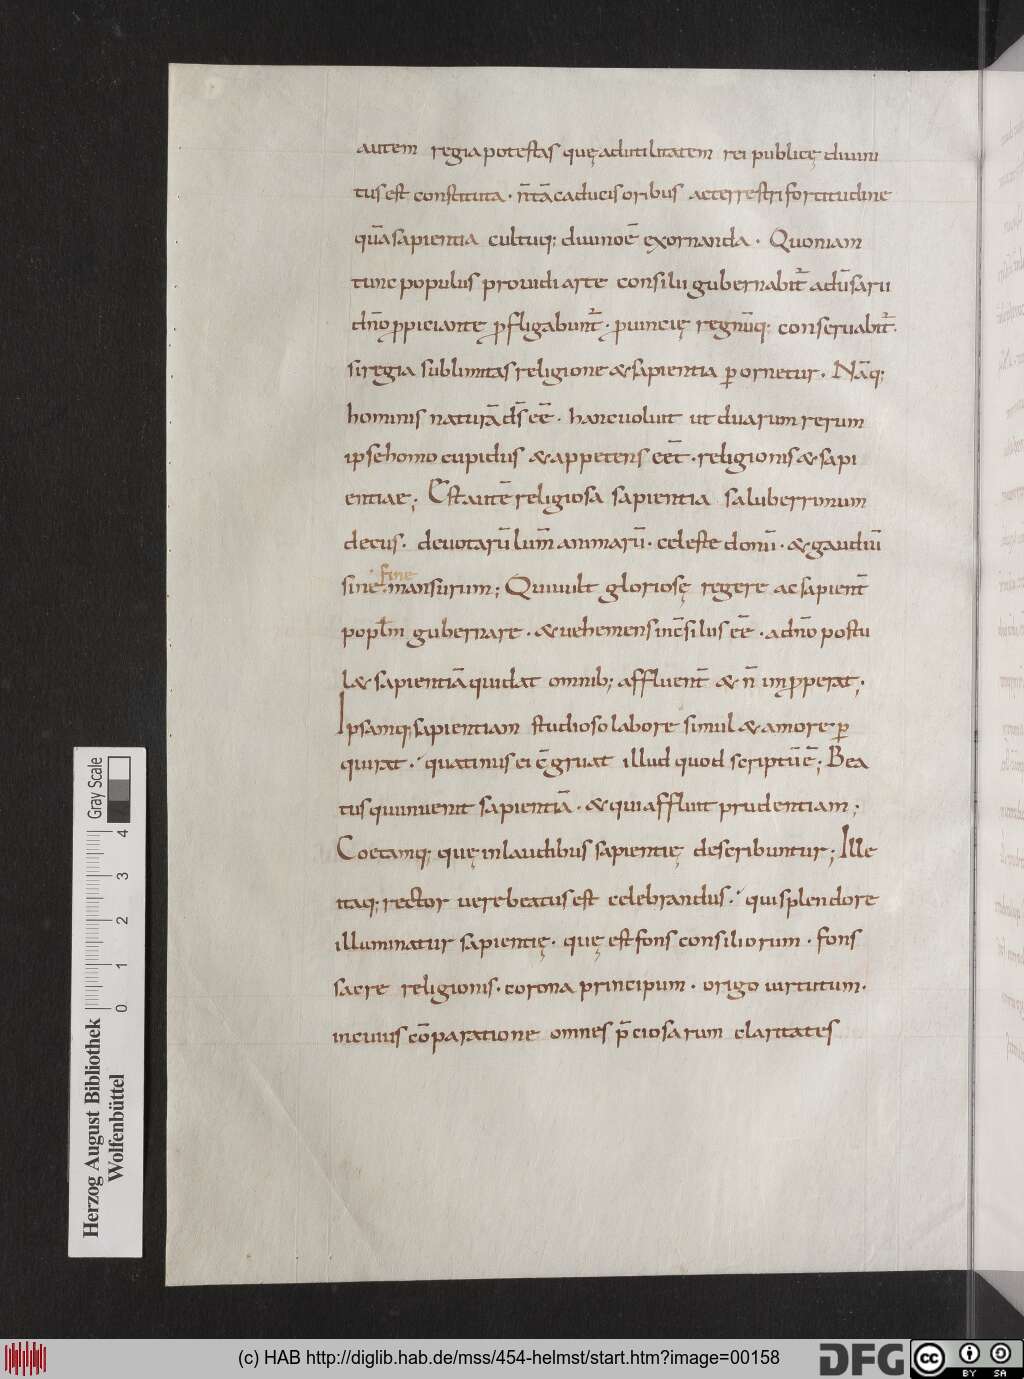 autem regia potestas quę ad utilitatem rei publicę diuini
tus est constituta · n̄ tā caducis oribus ac terrestri fortitudine
quā sapientia cultuq; diuino ē exornanda · Quoniam
tunc populus prouidi arte consilii gubernabit᷑ aduersarii
dn̄o ꝓpiciante ꝓfligabunt᷑ · ꝓuincię regnūq; conseruabit᷑·
si regia sublimitas religione & sapientia ꝑornetur · Nāq;
hominis naturā ds̄ eē · hanc uoluit ut duarum rerum
ipse homo cupidus & appetens eēt · religionis & sapi
entiae; Est autē religiosa sapientia saluberrimum
decus · deuotarū lum̄ animarū · celeste donū · & gaudiū
sine fine mansurum; Qui uult gloriosę regere ac sapient̄
popl̄m gubernare · & uehemens in c̄siliis eē · a dn̄o postu
l& sapientiā qui dat omnib; affluent̄ & n̄ inꝓperat;·
Ipsamq; sapientiam studioso labore simul & amore ꝑ
quirat · quatinus ei c̄gruat illud quod scriptū ē; Bea
tus qui inuenit sapientiā · & qui affluit prudentiam;
Coetanq; quę in laudibus sapientię describuntur; Ille
itaq; rector uere beatus est celebrandus · qui splendore
illuminatur sapientię · quę est fons consiliorum · fons
sacre religionis · corona principum · origo uirtutum·
in cuius cōparatione omnes p̄ciosarum claritates
Gray Scale
4
3
2
1
0
Herzog August Bibliothek
Wolfenbüttel
(c) HAB http://diglib.hab.de/mss/454-helmst/start.htm?image=00158
DFG
cc BY SA